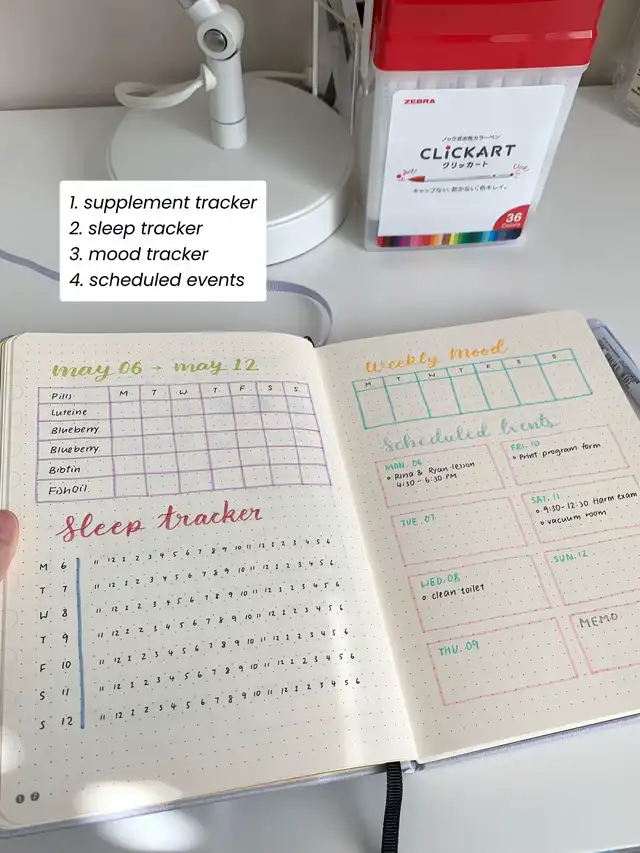 ZEBRA
ノック式水性カラーペン
CLiCKART
クリッカート
キャップない、乾かない、色キレイ。
36
Colors
1. supplement tracker
2. sleep tracker
3. mood tracker
4. scheduled events
may 06 → may 12
Pills M T W T F S S
Luteine
Blueberry
Blueberry
Biotin
Fish Oil
Sleep tracker
M 6 11 12 1 2 3 4 5 6 7 8 9 10 11 12 1 2 3 4 5 6
T 7 11 12 1 2 3 4 5 6 7 8 9 10 11 12 1 2 3 4 5 6
W 8 11 12 1 2 3 4 5 6 7 8 9 10 11 12 1 2 3 4 5 6
T 9 11 12 1 2 3 4 5 6 7 8 9 10 11 12 1 2 3 4 5 6
F 10 11 12 1 2 3 4 5 6 7 8 9 10 11 12 1 2 3 4 5 6
S 11 11 12 1 2 3 4 5 6 7 8 9 10 11 12 1 2 3 4 5 6
S 12 11 12 1 2 3 4 5 6 7 8 9 10 11 12 1 2 3 4 5 6
1 2
Weekly Mood
M T W T F S S
Scheduled Events
MON. 06
Rina & Ryan lesson
4:30 - 6:30 PM
TUE. 07
WED. 08
clean toilet
THU. 09
FRI. 10
Print program form
SAT. 11
9:30-12:30 Harm exam
vacuum room
SUN. 12
MEMO